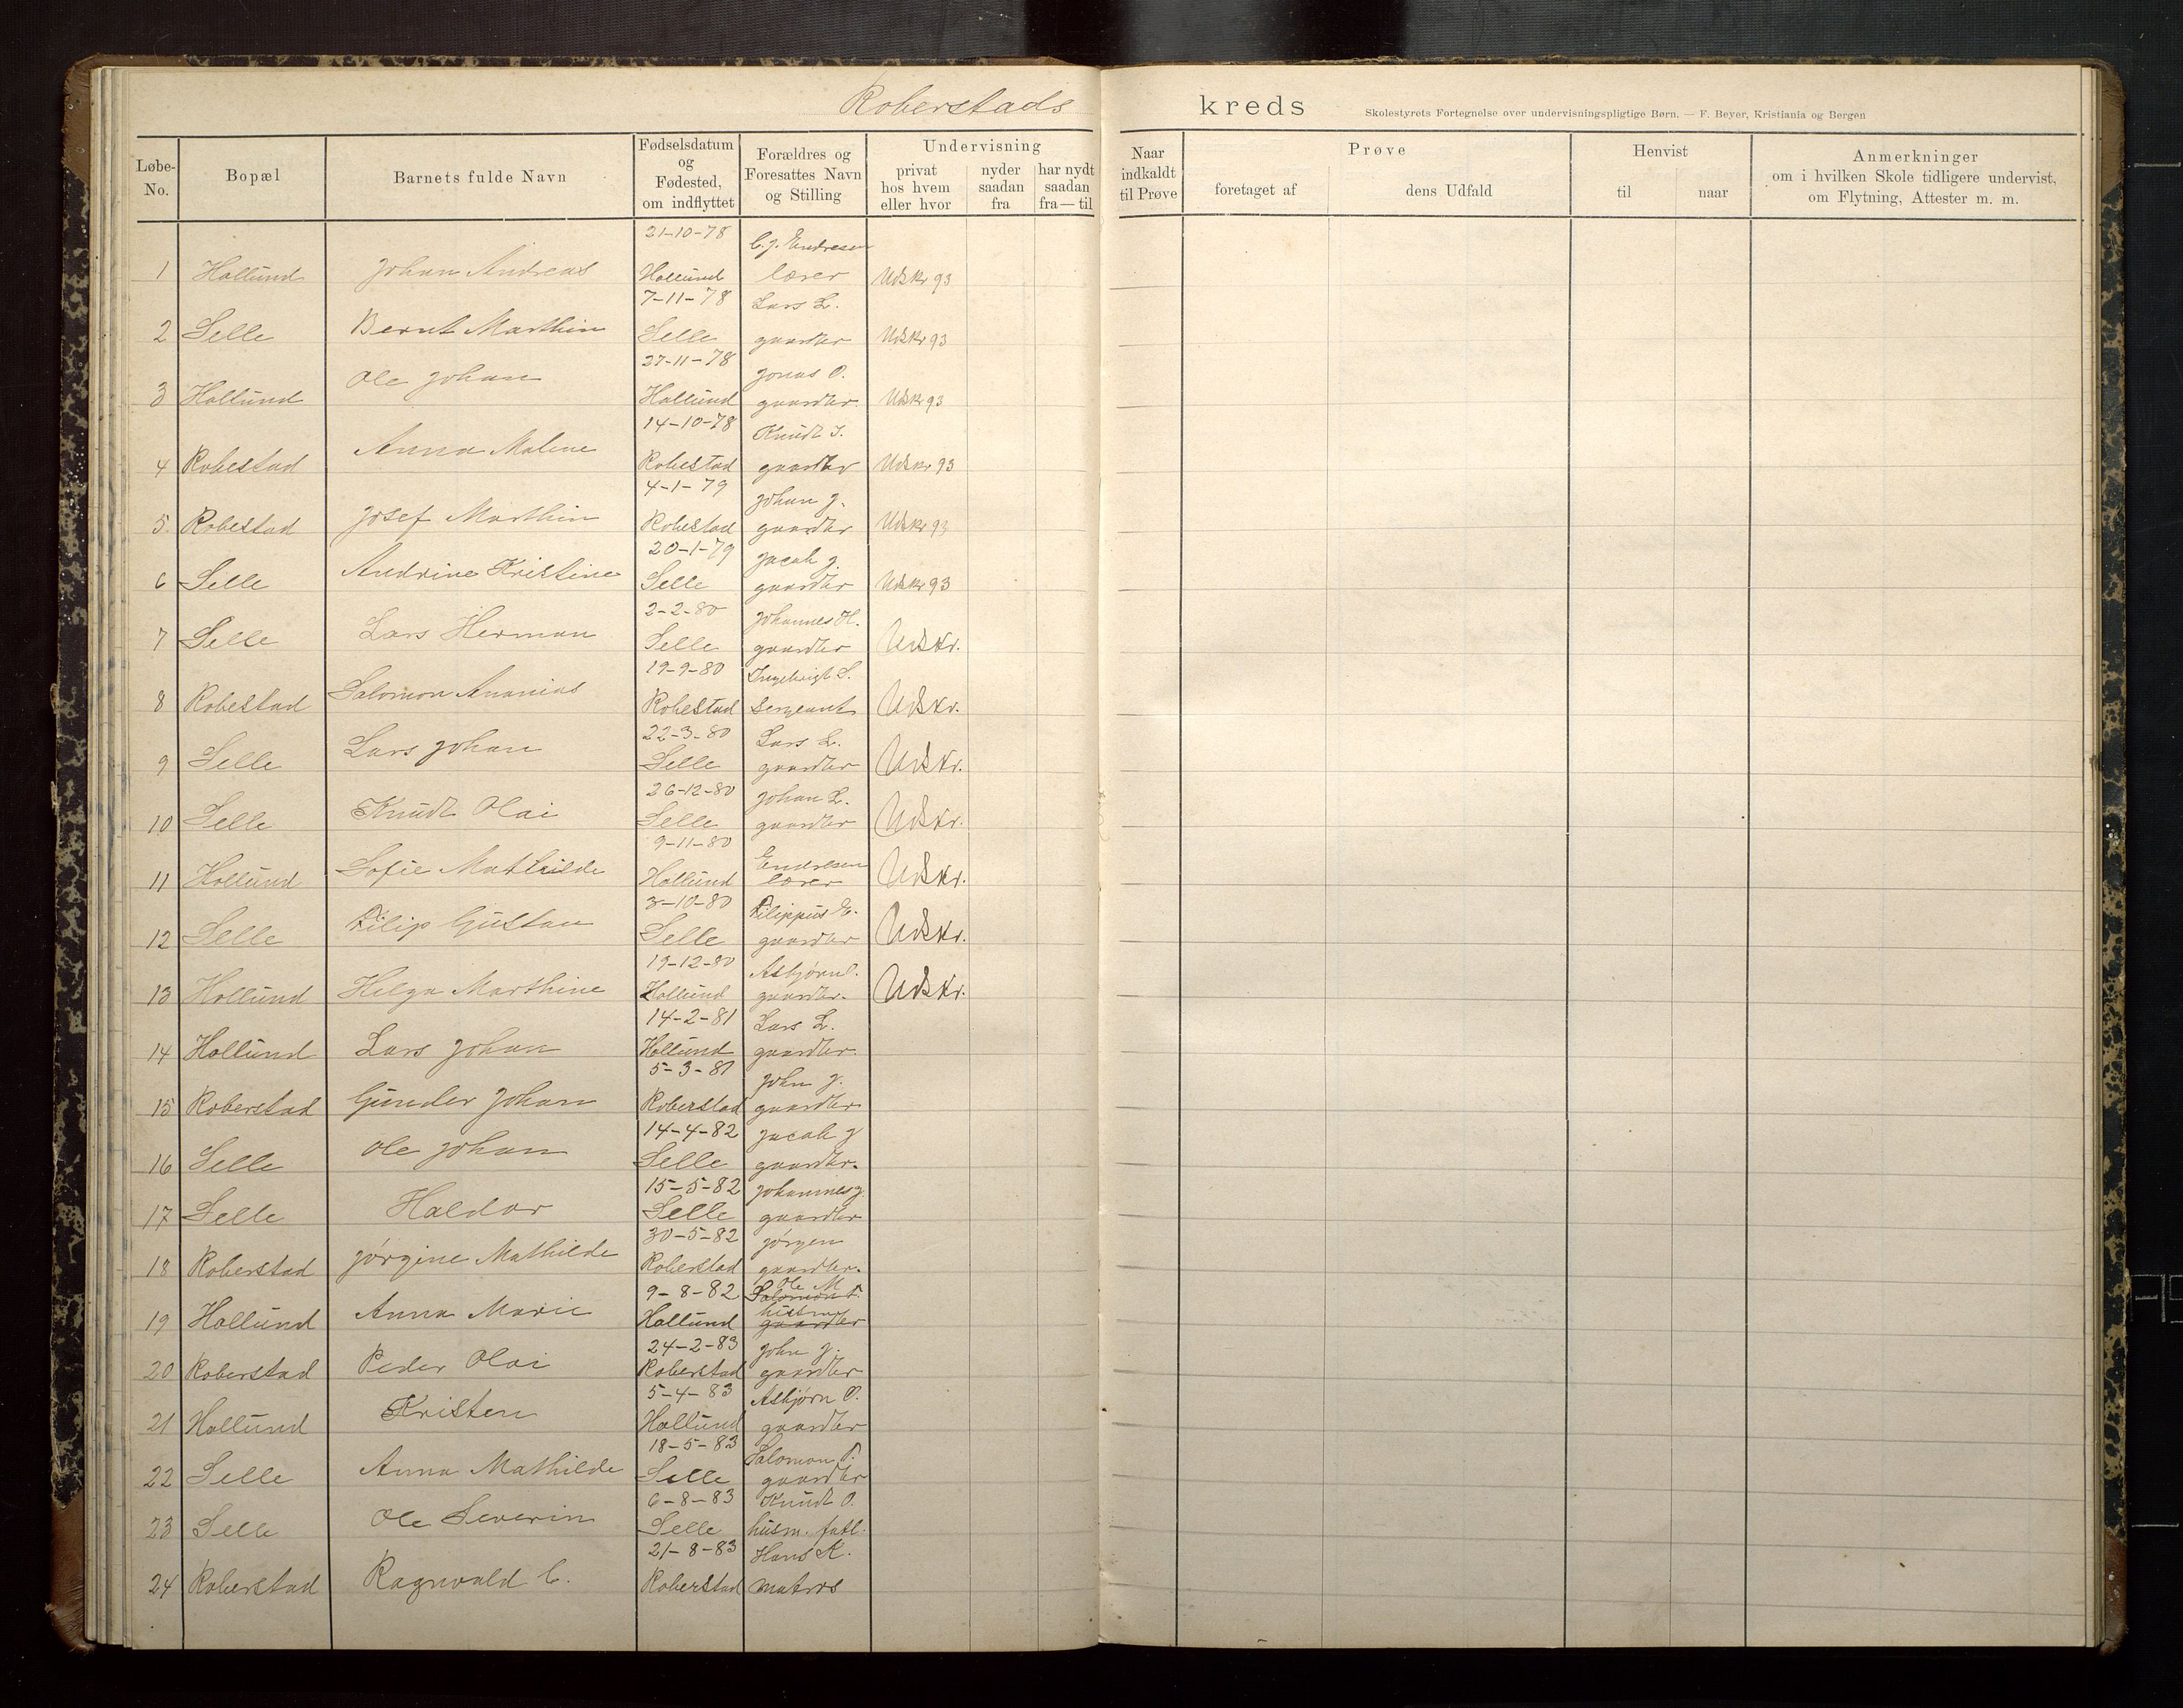 Roberstads kreds
Skolestyrets Fortegnelse over undervisningspligtige Børn. — F. Beyer, Kristiania og Bergen
Løbe-No. Bopæl Barnets fulde Navn Fødselsdatum og Fødested, om indflyttet Forældres og Foresattes Navn og Stilling Undervisning privat hos hvem eller hvor nyder saadan fra har nydt saadan fra — til Naar indkaldt til Prøve Prøve foretaget af dens Udfald Henvist til naar Anmerkninger om i hvilken Skole tidligere undervist, om Flytning, Attester m. m.
21-10-78 C. J. Endresen
1 Hollund Johan Andreas Hollund lærer Udskr 93
7-11-78 Lars L.
2 Selle Bernt Marthin Selle gaardbr Udskr 93
27-11-78 Jonas O.
3 Hollund Ole Johan Hollund gaardbr. Udskr 93
14-10-78 Knudt I.
4 Robestad Anna Malene Robestad gaardbr Udskr 93
4-1-79 Johan J.
5. Robestad Josef Marthin Robestad gaardbr Udskr 93
20-1-79 Jacob J.
6 Selle Andrine Kristine Selle gaardbr Udskr 93
2-2-80 Johannes H.
7 Selle Lars Herman Selle gaardbr Udskr.
19-9-80 Ingebrigt L.
8 Robestad Salomon Ananias Robestad Sergeant Udskr.
22-3-80 Lars L.
9 Selle Lars Johan Selle gaardbr Udskr.
26-12-80 Johan L.
10 Selle Knudt Olai Selle gaardbr Udskr.
9-11-80 Endresen
11 Hollund Sofie Mathilde Hollund lærer Udskr.
3-10-80 Filippus E.
12 Selle Filip Gustav Selle gaardbr Udskr.
19-12-80 Asbjørn O.
13 Hollund Helga Marthine Hollund gaardbr. Udskr.
14-2-81 Lars L.
14 Hollund Lars Johan Hollund gaardbr.
5-3-81 John J.
15 Roberstad Gunder Johan Roberstad gaardbr
14-4-82 Jacob J
16 Selle Ole Johan Selle gaardbr.
15-5-82 Johannes J.
17 Selle Haldor Selle gaardbr
30-5-82 Jørgen
18 Roberstad Jørgine Mathilde Roberstad gaardbr.
9-8-82 Ole M Salomon T.
19 Hollund Anna Marie Hollund husm gaardbr
24-2-83 John J.
20 Roberstad Peder Olai Roberstad gaardbr
5-4-83 Asbjørn O.
21 Hollund Kristen Hollund gaardbr
18-5-83 Salomon T.
22 Selle Anna Mathilde Selle gaardbr
6-8-83 Knudt O.
23 Selle Ole Severin Selle husm. fatl.
21-8-83 Hans K.
24 Roberstad Ragnvald C. Roberstad matros